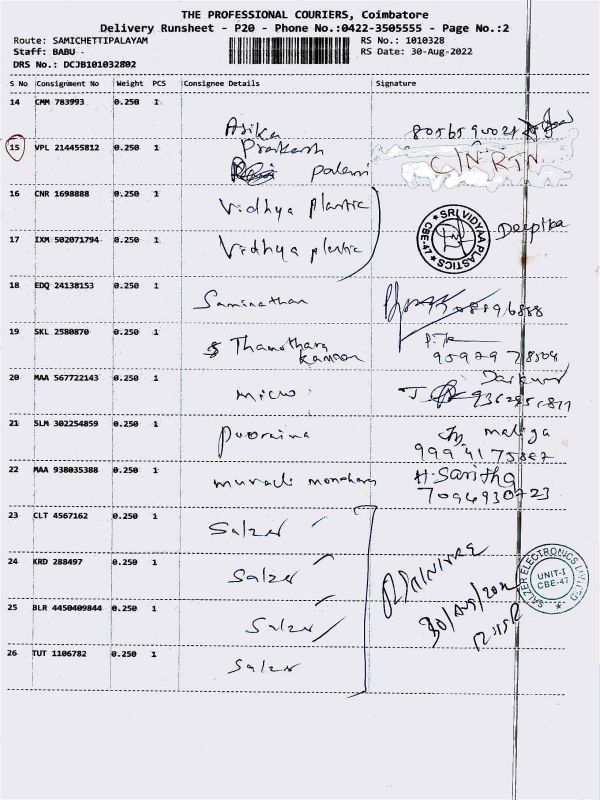 THE PROFESSIONAL COURIERS, Coimbatore
Delivery Runsheet - P20 - Phone No.:0422-3505555 - Page No.:2
Route: SAMICHETTIPALAYAM RS No.: 1010328
Staff: BABU - RS Date: 30-Aug-2022
DRS No.: DCJB101032802
S No Consignment No Weight PCS Consignee Details Signature
14 CMM 783993 0.250 1 Asika
15 VPL 214455812 0.250 1 Prakash C/N RTN
Palani
16 CNR 1698888 0.250 1 Vidhya Plastic
SRI VIDYAA PLASTICS CBE-47 Deepika
17 IXM 502071794 0.250 1 Vidhya plastic
18 EDQ 24138153 0.250 1 Saminathan
19 SKL 2580870 0.250 1 Thamothara
Kannan
20 MAA 567722143 0.250 1 micro
21 SLM 302254859 0.250 1 poornima maliga
22 MAA 938035388 0.250 1 H. Saritha
7094930723
23 CLT 4567162 0.250 1 Salzer
24 KRD 288497 0.250 1 Salzer
SALZER ELECTRONICS LIMITED UNIT-I CBE-47
25 BLR 4450409844 0.250 1 Salzer
26 TUT 1106782 0.250 1 Salzer